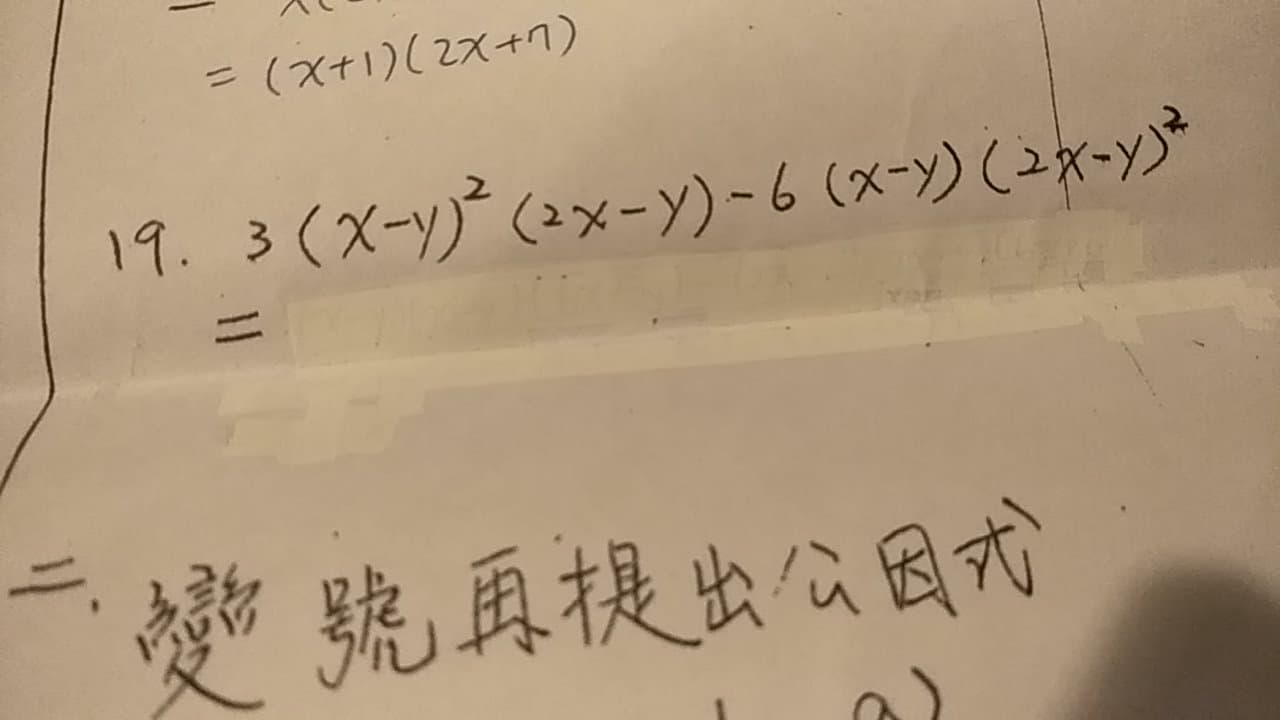 = (x+1)(2x+7)
19. 3(x-y)² (2x-y)-6(x-y)(2x-y)²
=
二. 變號再提出公因式